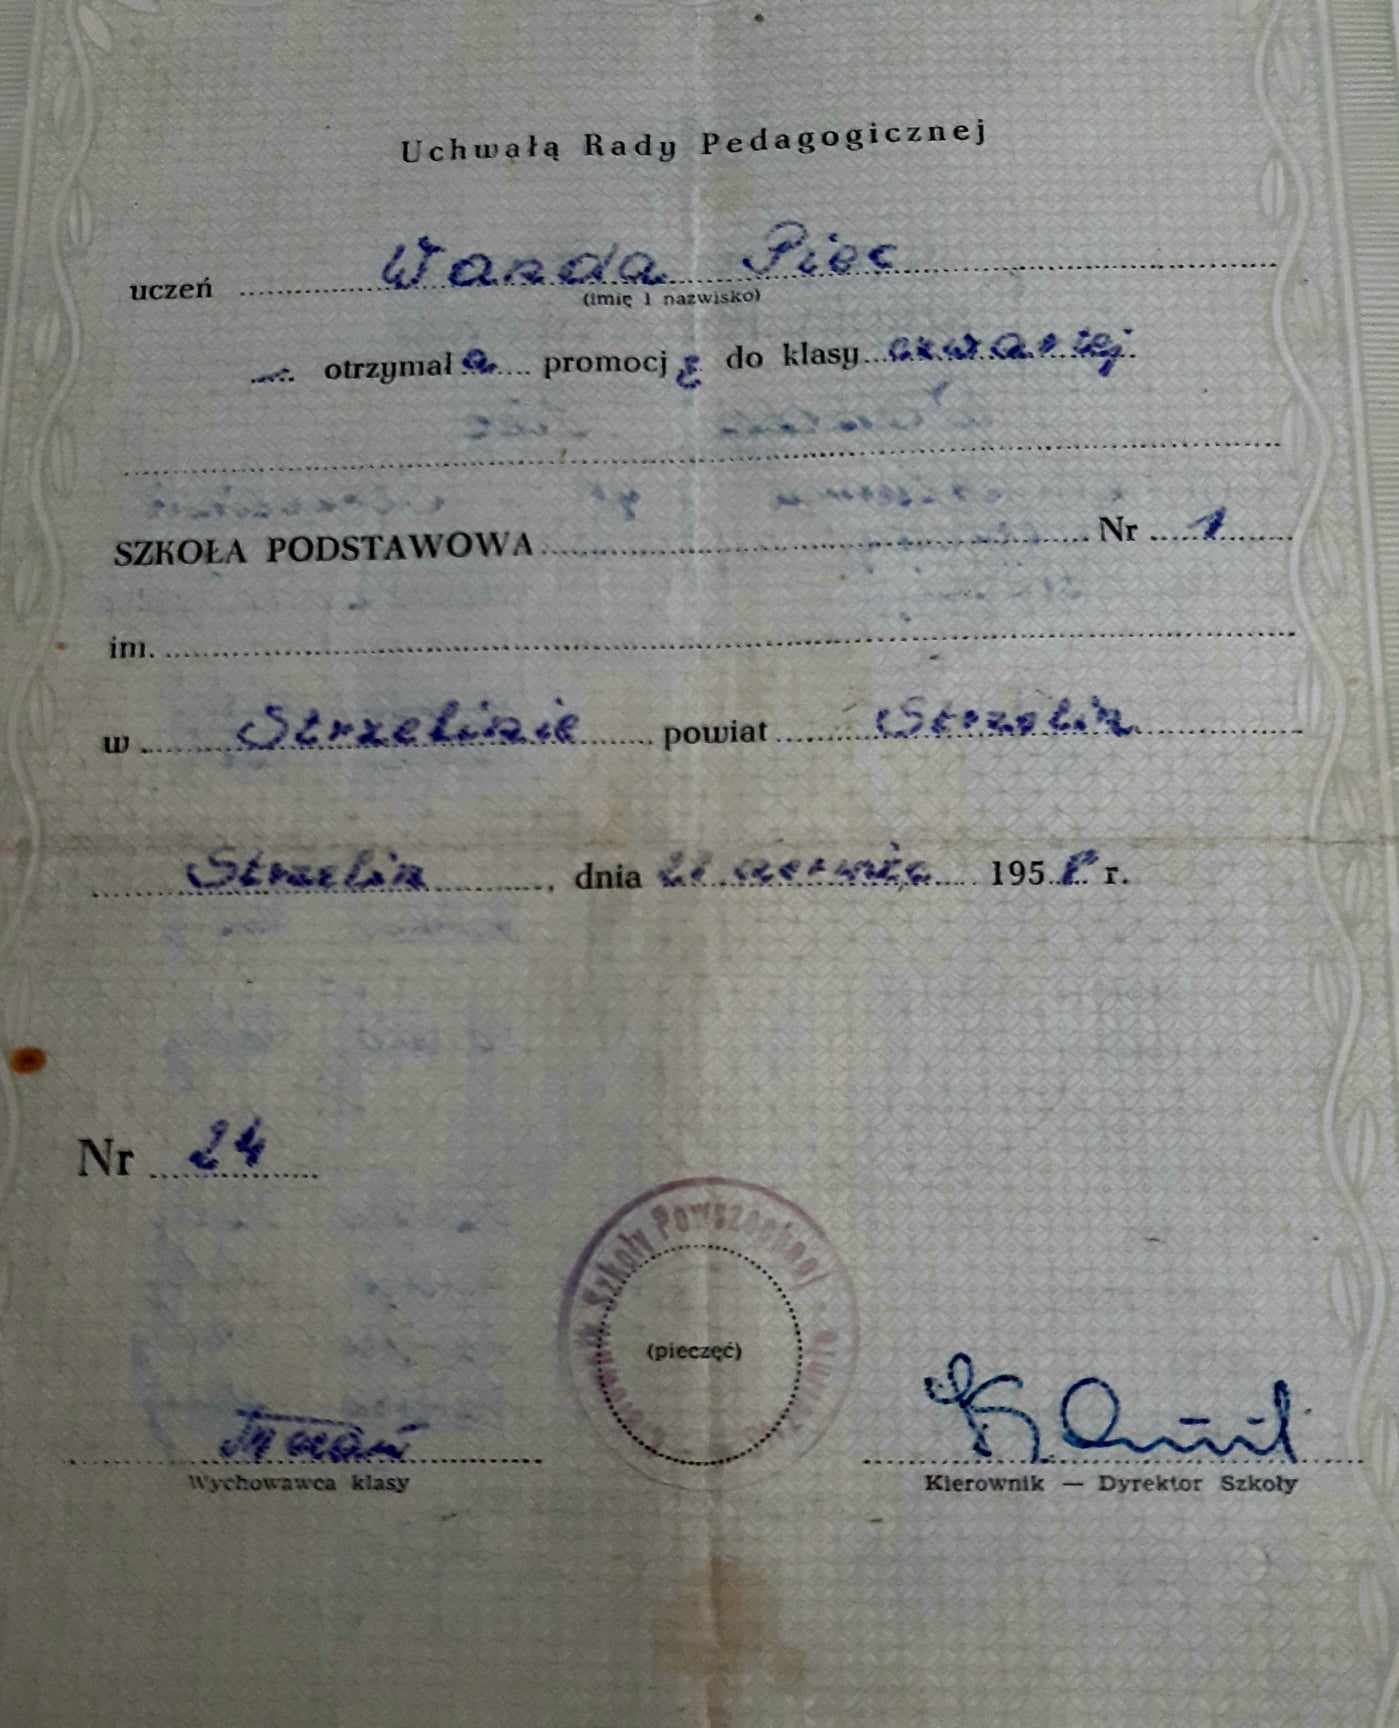 Uchwałą Rady Pedagogicznej
uczeń Wanda Piec
(imię i nazwisko)
otrzymał a promocj ę do klasy czwartej
SZKOŁA PODSTAWOWA Nr 1
im.
w Strzelinie powiat Strzelin
Strzelin, dnia czerwca 1958 r.
Nr 24
Kierownik Szkoły Powszechnej
(pieczęć)
Wychowawca klasy
Kierownik — Dyrektor Szkoły